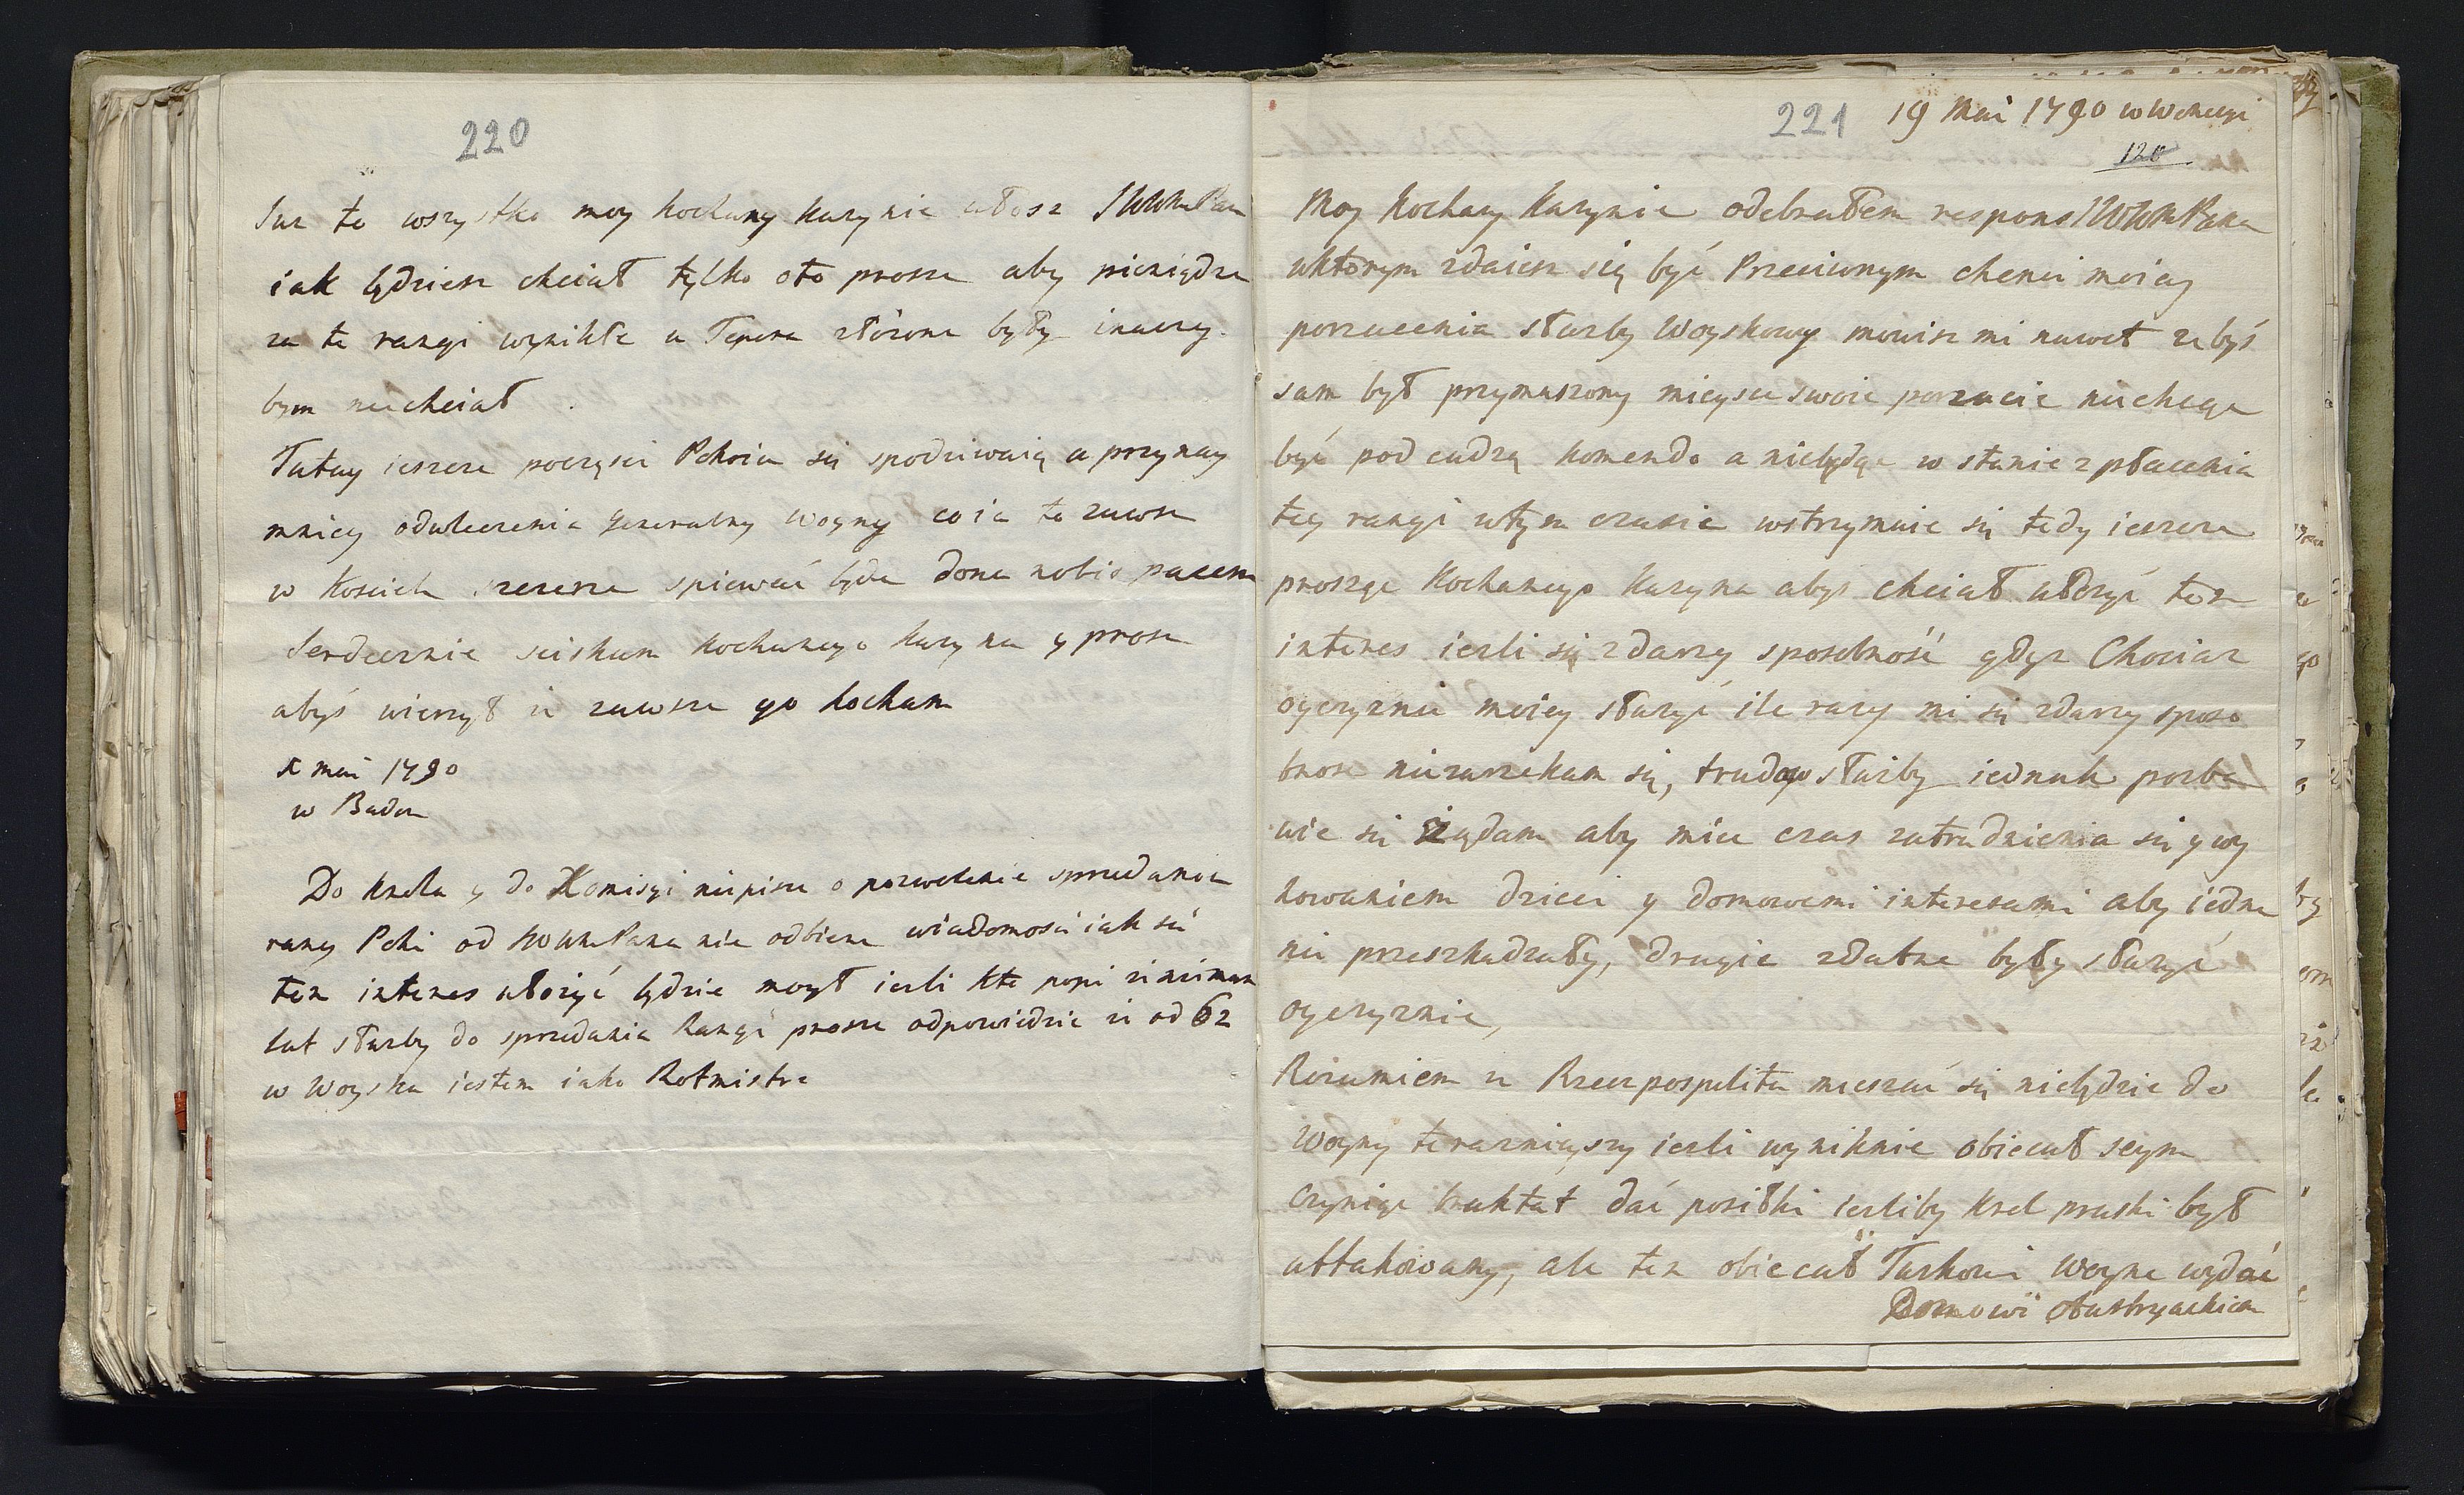 220
Juz to wszystko moy kochany kuzynie ułosz JWWMPan
iak będziesz chciał tylko oto prosze aby pieniądze
za te rangi wynikłe u Tepera złożone były inaczy
bym niechciał.
Tutay ieszcze poczęsci Pokoiu się spodziwaią a przynay
mniey odwleczenia generalny Woyny co ia to zawsze
w kosciele szczerze spiewać będe dona nobis pacem
Serdecznie sciskam kochanego kuzyna y prosze
abyś wierzył iż zawsze go kocham
mai 1790
w Baden
Do krola y do Komisyi niepisze o pozwolenie sprzedania
rangi Poki od JWWMPana nie odbiere wiadomosci iak się
ten interes ułożyć będzie mogł iesli kto powi iż niemam
lat słuzby do sprzedania Rangi prosze odpowiedzie iż od 62
w Woysku iestem iako Rotmistrz
221 19 Mai 1790 w Weneçyi
120
Moy Kochany Kuzynie odebrałem respons JWWMPana
wktorym zdaiesz się być Przeciwnym chenci moiey
porzucenia słuzby Woyskowy mowisz mi nawet zebyś
sam był przymuszony mieysce swoie porzucic niechcąc
być pod cudzą komendo a niebędąc w stanie zpłacenia
tey rangi wtym czasie wstrzymuie się tedy ieszcze
proszęc Kochanego Kuzyna abys chciał ułożyć ten
interes iesli się zdarzy sposobność gdyz Chociaz
oyczyznie moiey słuzyć ile razy mi się zdarzy sposo
bnosc niezarzekam się, trudow słuzby iednak pozba
wic się żądam aby miec czas zatrudnienia się y wy
howaniem dzieci y domowemi interesami aby iedne
nie przeszkadzały, drugie zdatne były słuzyć
oyczyznie,
Rozumiem iż Rzeczpospolita mieszać się niebędzie do
Woyny terazniyszy iesli wyniknie obiecał seym
czyniąc traktat dać posiłki iesliby krol pruski był
attakowany, ale ten obiecał Turkowi Woyne wydać
Domowi Austryackiem